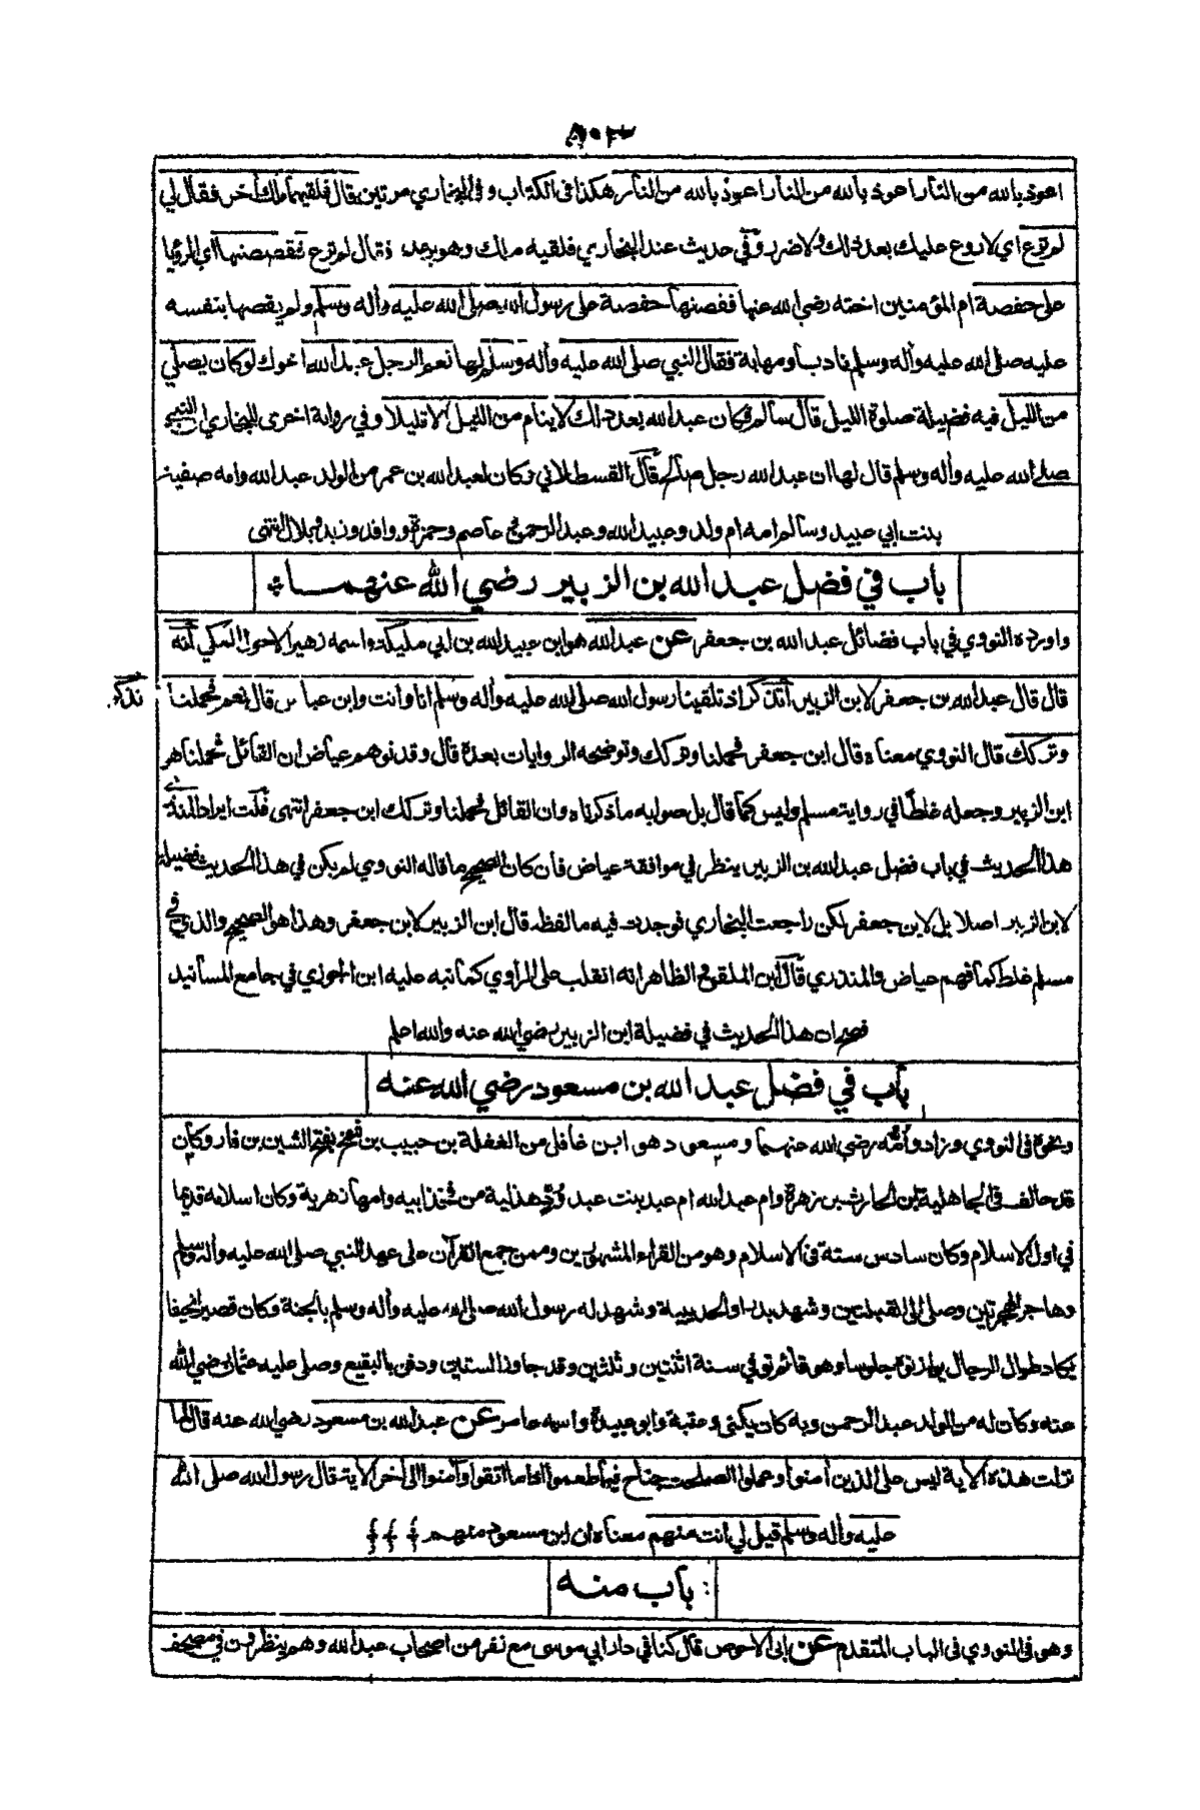 ٥٠٣
اعوذ بالله من النار اعوذ بالله من النار اعوذ بالله من النار هكذا في الكتاب وفي البخاري مرتين قال فلقيهما ملك أخر فقال لي
لم ترع اي لا روع عليك بعد ذلك ولا ضرر وفي حديث عند البخاري فلقيه ملك وهو يرعد فقال لم ترع فقصصتها اي الرؤيا
على حفصة ام المؤمنين اخته رضي الله عنها فقصتها حفصة على رسول الله صلى الله عليه وأله وسلم ولم يقصها بنفسه
عليه صلى الله عليه وأله وسلم تادبا ومهابة فقال النبي صلى الله عليه وأله وسلم لها نعم الرجل عبد الله اخوك لو كان يصلي
من الليل فيه فضيلة صلوة الليل قال سالم فكان عبد الله بعد ذلك لا ينام من الليل الا قليلا وفي رواية اخرى للبخاري ان النبي
صلى الله عليه وأله وسلم قال لها ان عبد الله رجل صالح قال القسطلاني وكان لعبد الله بن عمر من الولد عبد الله وامه صفية
بنت ابي عبيد وسالم امه ام ولد وعبيد الله وعبد الرحمن وعاصم وحمزة وواقد وزيد وبلال انتهى
باب في فضل عبد الله بن الزبير رضي الله عنهما
واورده النووي في باب فضائل عبد الله بن جعفر عن عبد الله هو ابن عبيد الله بن ابي مليكة واسمه زهير الاحول المكي انه
قال قال عبد الله بن جعفر لابن الزبير أتذكر اذ تلقينا رسول الله صلى الله عليه وأله وسلم انا وانت وابن عباس قال نعم فحملنا
وتركك قال النووي معناه قال ابن جعفر فحملنا وتركك وتوضحه الروايات بعده قال وقد توهم عياض ان القائل فحملنا هو
ابن الزبير وجعله غلطا في رواية مسلم وليس كما قال بل صوابه ما ذكرناه وان القائل فحملنا وتركك ابن جعفر انتهى قلت ايراد المنذري
هذا الحديث في باب فضل عبد الله بن الزبير ينظر في موافقة عياض فان كان الصحيح ما قاله النووي لم يكن في هذا الحديث فضيلة
لابن الزبير اصلا بل لابن جعفر لكن راجعت البخاري فوجدت فيه ما لفظه قال ابن الزبير لابن جعفر وهذا هو الصحيح والذي في
مسلم غلط كما فهم عياض والمنذري قال ابن الملقن الظاهر انه انقلب على الراوي كما نبه عليه ابن الجوزي في جامع المسانيد
فصح ان هذا الحديث في فضيلة ابن الزبير رضي الله عنه والله اعلم
باب في فضل عبد الله بن مسعود رضي الله عنه
ونحوه في النووي وزاد وأمه رضي الله عنهما ومسعود هو ابن غافل من الغفلة بن حبيب بن شمخ بفتح الشين بن فار وكان
قد حالف في الجاهلية ابن الحارث بن زهرة وام عبد الله ام عبد بنت عبد ود هذلية من فخذ ابيه وامها زهرية وكان اسلامه قديما
في اول الاسلام وكان سادس ستة في الاسلام وهو من القراء المشهورين وممن جمع القرآن على عهد النبي صلى الله عليه وأله وسلم
وهاجر الهجرتين وصلى الى القبلتين وشهد بدرا والحديبية وشهد له رسول الله صلى الله عليه وأله وسلم بالجنة وكان قصيرا نحيفا
يكاد طوال الرجال يوازنونه جلوسا وهو قائم توفي سنة اثنتين وثلثين وقد جاوز الستين ودفن بالبقيع وصلى عليه عثمان رضي الله
عنه وكان له من الولد عبد الرحمن وبه كان يكنى وعقبة وابو عبيدة واسمه عامر عن عبد الله بن مسعود رضي الله عنه قال لما
نزلت هذه الاية ليس على الذين أمنوا وعملوا الصلحت جناح فيما طعموا اذا ما اتقوا وأمنوا الى أخر الاية قال رسول الله صلى الله
عليه وأله وسلم قيل لي انت منهم معناه ان ابن مسعود منهم
باب منه
وهو في النووي في الباب المتقدم عن ابي الاحوص قال كنا في دار ابي موسى مع نفر من اصحاب عبد الله وهم ينظرون في مصحف
تذكر